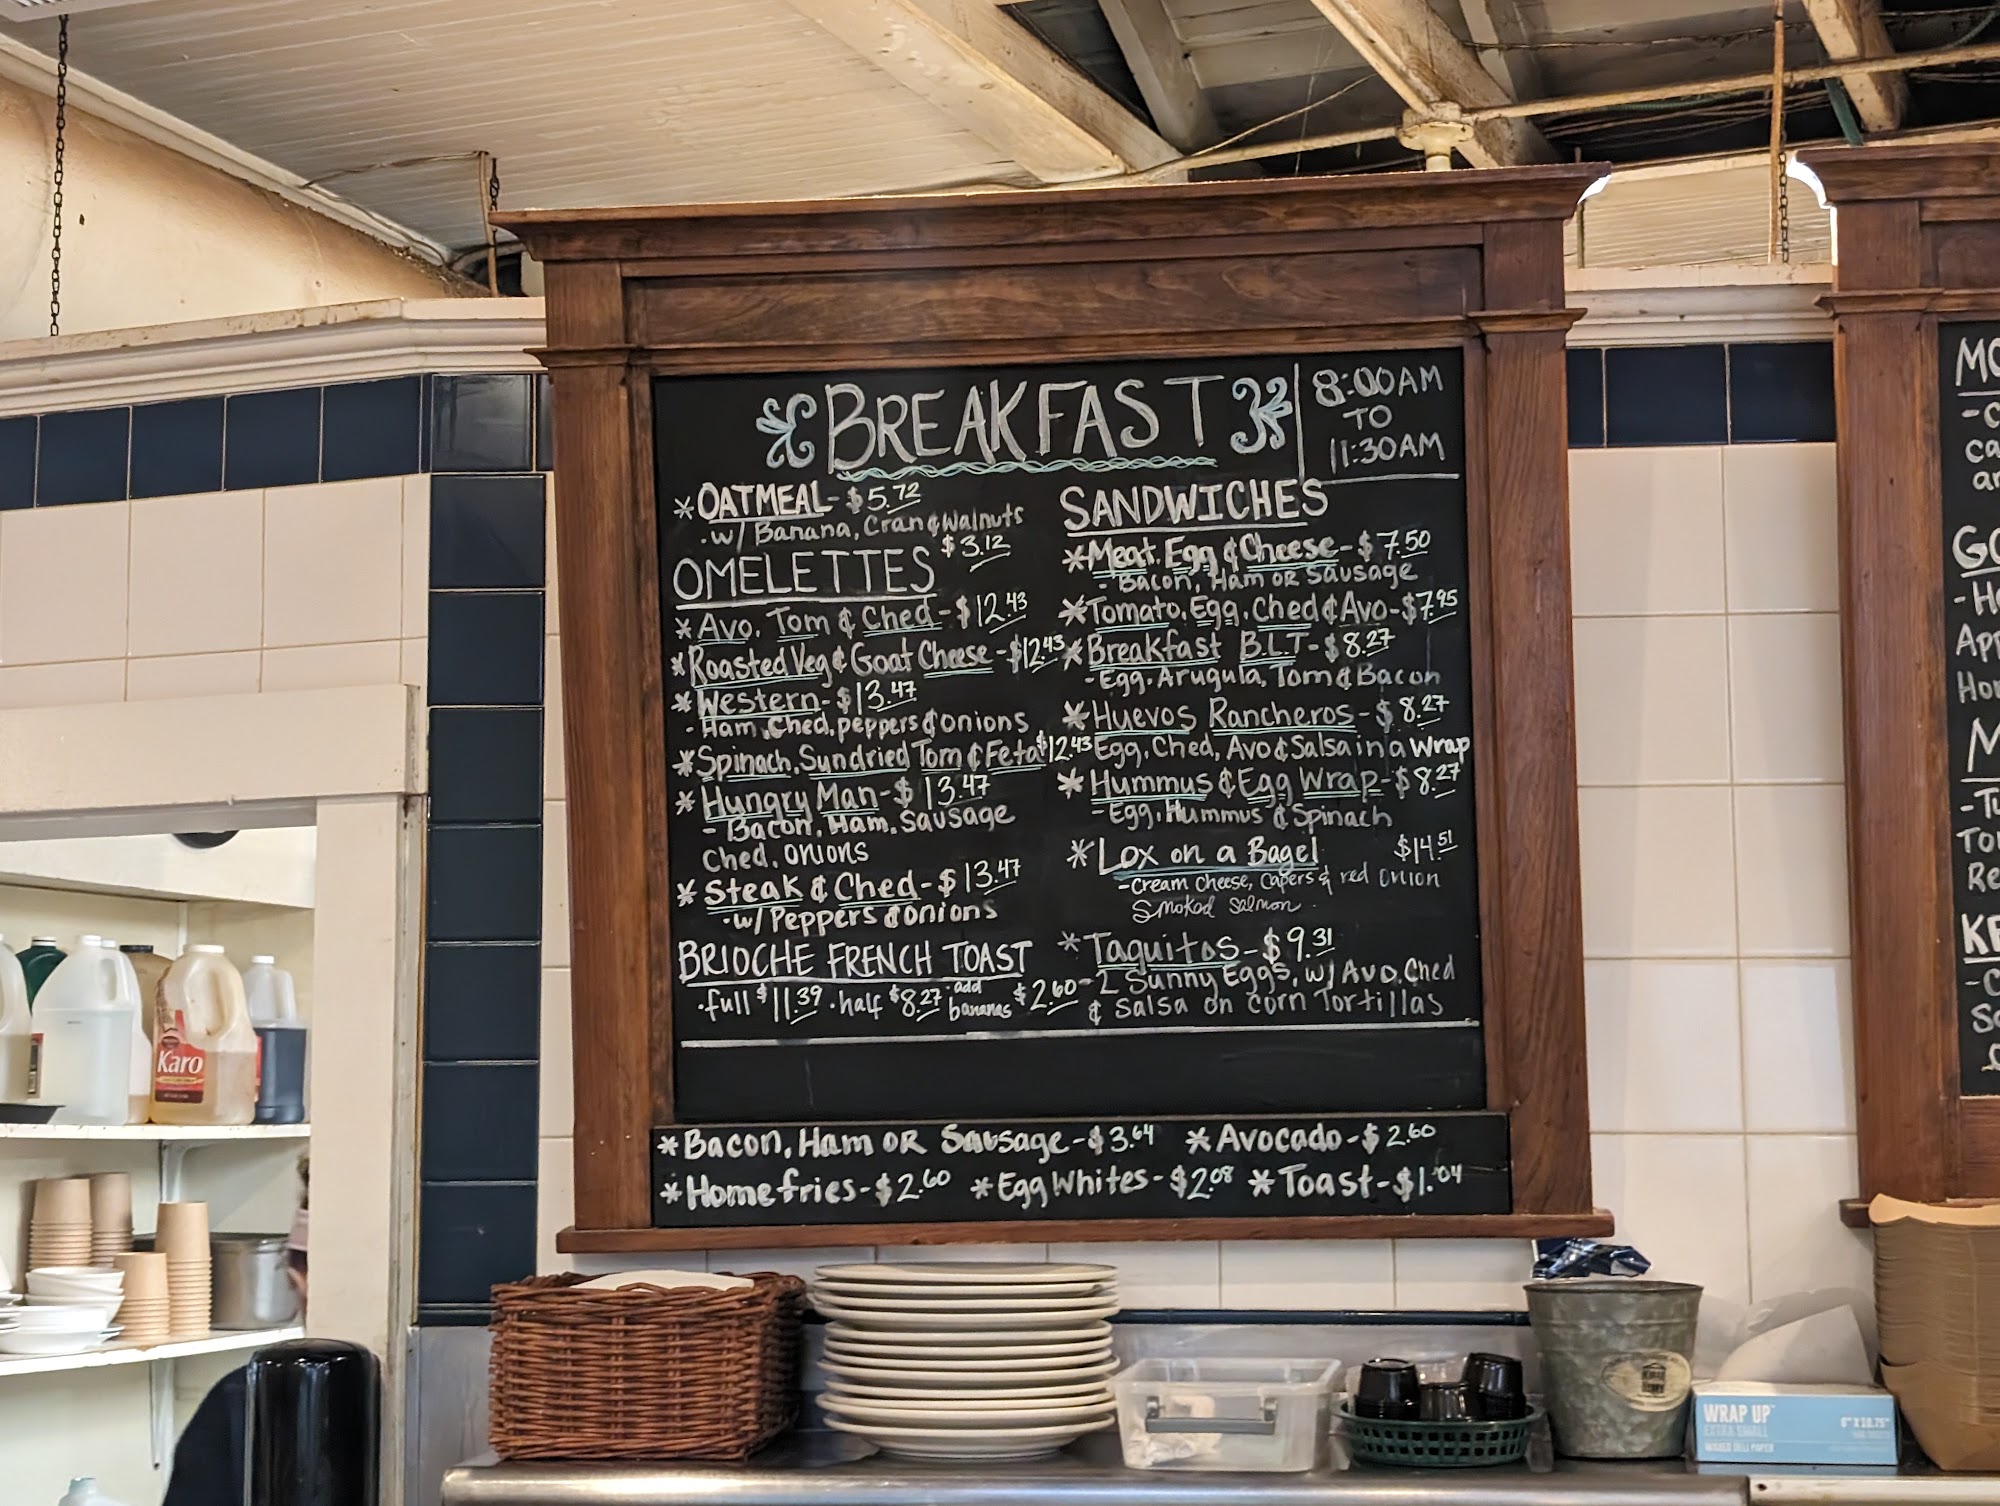 BREAKFAST
8:00AM
TO
11:30AM
*OATMEAL-$5.72
·w/ Banana, Cran & Walnuts
$3.12
OMELETTES
*Avo, Tom & Ched-$12.43
*Roasted Veg & Goat Cheese-$12.43
*Western-$13.47
-Ham, Ched, peppers & onions
*Spinach, Sundried Tom & Feta $12.43
*Hungry Man-$13.47
-Bacon, Ham, Sausage
Ched, onions
*Steak & Ched-$13.47
·w/ Peppers & onions
BRIOCHE FRENCH TOAST
·full $11.39 ·half $8.27 ·add bananas $2.60
SANDWICHES
*Meat, Egg & Cheese-$7.50
-Bacon, Ham OR Sausage
*Tomato, Egg, Ched & Avo-$7.95
*Breakfast B.L.T-$8.27
-Egg, Arugula, Tom & Bacon
*Huevos Rancheros-$8.27
Egg, Ched, Avo & Salsa in a Wrap
*Hummus & Egg Wrap-$8.27
-Egg, Hummus & Spinach
*Lox on a Bagel $14.51
-Cream Cheese, Capers & red onion
Smoked Salmon
*Taquitos-$9.31
-2 Sunny Eggs, w/ Avo, Ched
& Salsa on Corn Tortillas
*Bacon, Ham OR Sausage-$3.64 *Avocado-$2.60
*Homefries-$2.60 *Egg Whites-$2.08 *Toast-$1.04
Karo
WRAP UP
EXTRA SMALL
WAXED DELI PAPER
6" X 10.75"